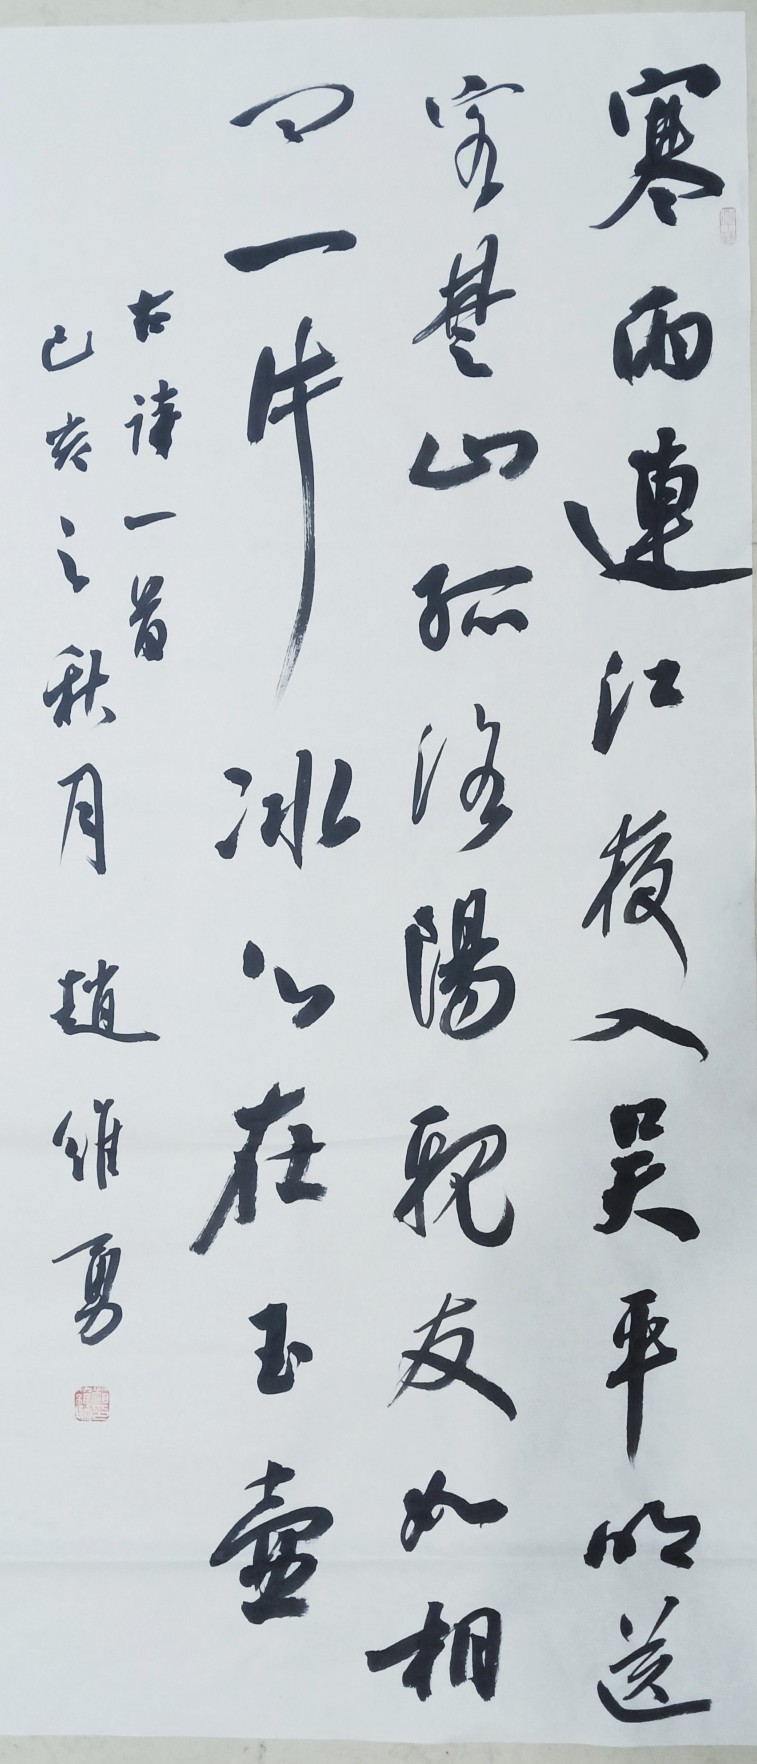 寒雨連江夜入吴平明送
客楚山孤洛陽親友如相
问一片冰心在玉壺
古诗一首
己亥之秋月 趙维勇